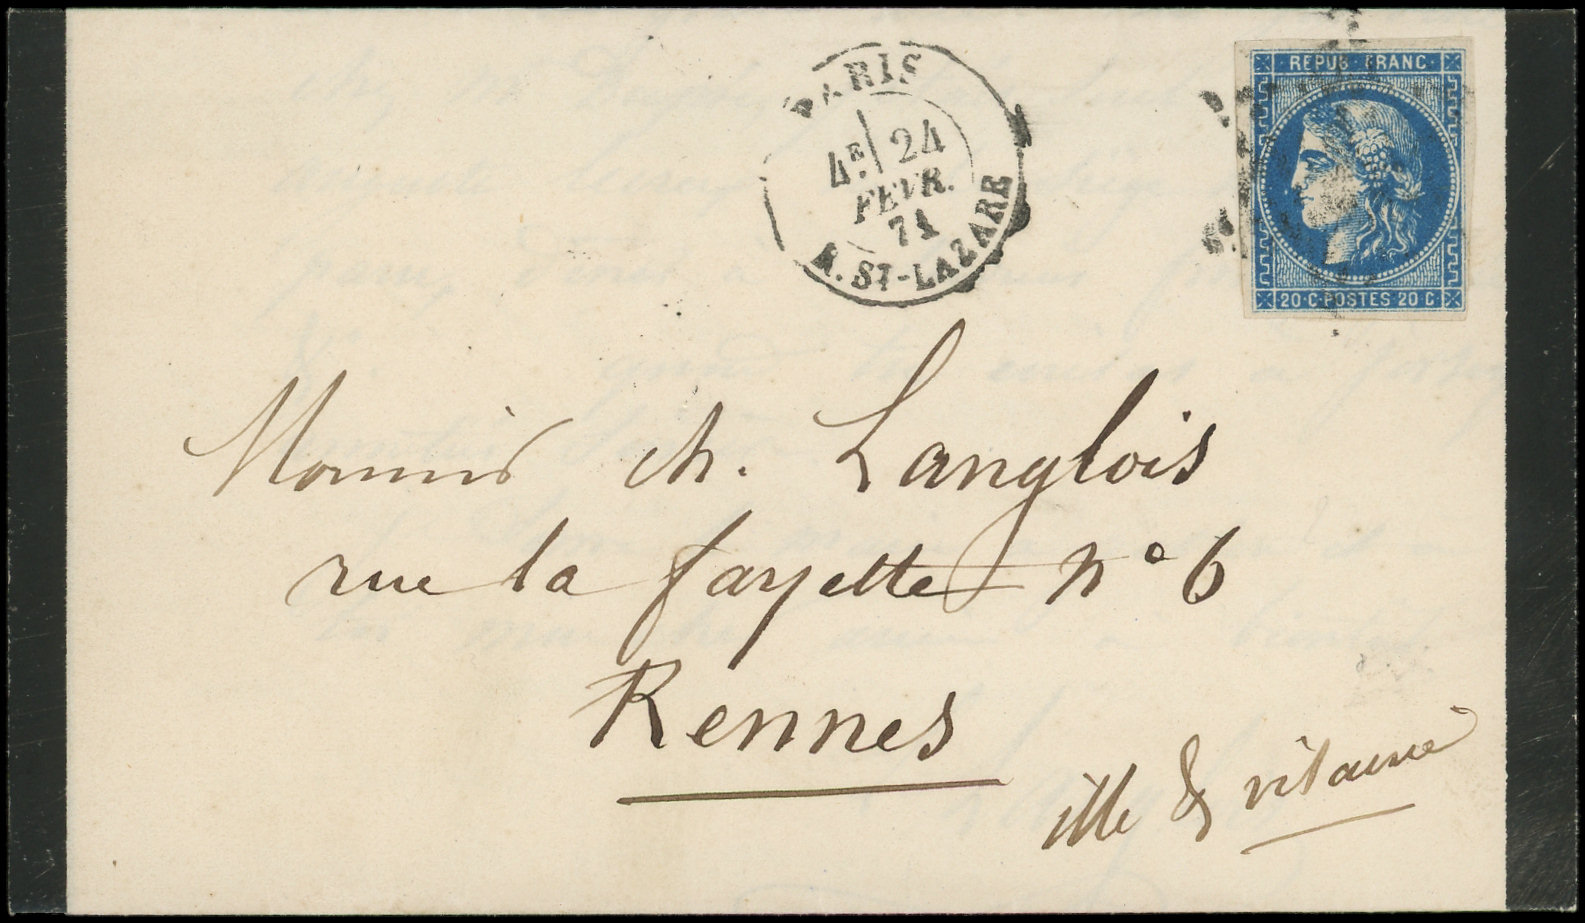 PARIS
4E 24
FEVR.
71
R. ST-LAZARE
REPUB FRANC
20 C POSTES 20 C
Monsieur ch. Langlois
rue la fayette n° 6
Rennes
ille & vilaine